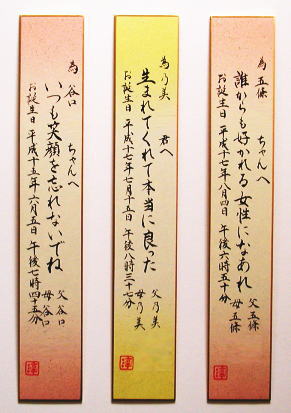 為 五條 ちゃんへ
誰からも好かれる女性になあれ
お誕生日 平成十七年八月四日 午後六時五十分
父 五條
母 五條
為 乃美 君へ
生まれてくれて本当に良った
お誕生日 平成十七年七月十五日 午後八時三十七分
父 乃美
母 乃美
為 谷口 ちゃんへ
いつも笑顔を忘れないでね
お誕生日 平成十五年六月五日 午後七時四十五分
父 谷口
母 谷口